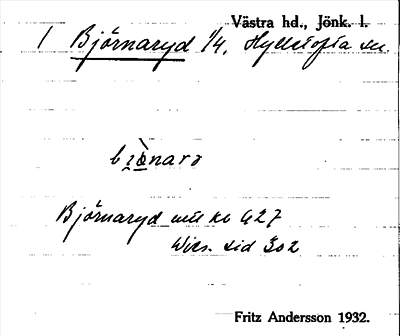 Västra hd., Jönk. l.
1 Björnaryd 1/4, Hylletofta sn.
Björnaryd 427
sid 302
Fritz Andersson 1932.